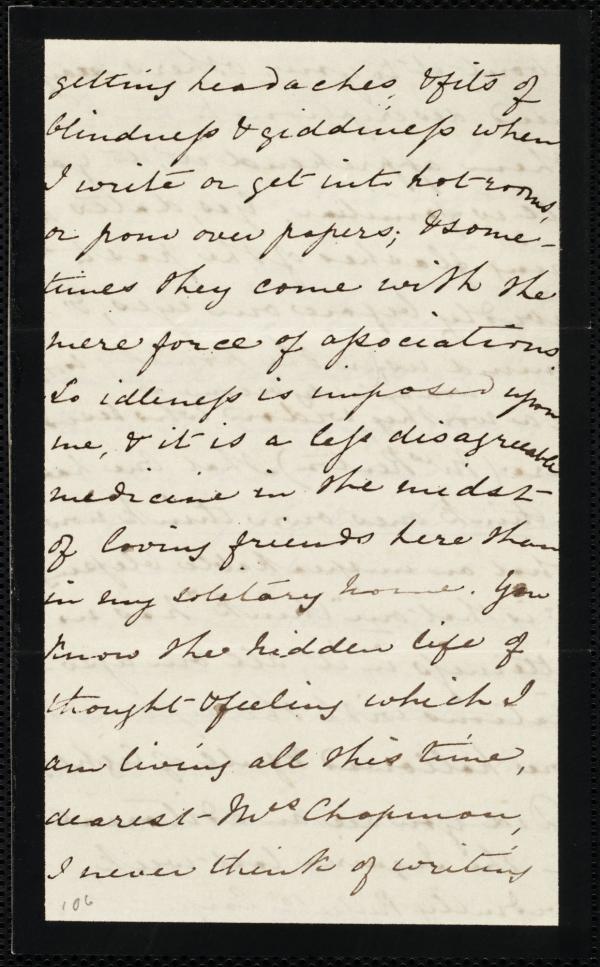 getting headaches, & fits of
blindness & giddiness when
I write or get into hot rooms,
or pore over papers; & some-
times they come with the
mere force of associations
So idleness is imposed upon
me, & it is a less disagreeable
medicine in the midst
of loving friends here than
in my solitary home. You
know the hidden life of
thought & feeling which I
am living all this time,
dearest Mrs Chapman,
I never think of writing
106